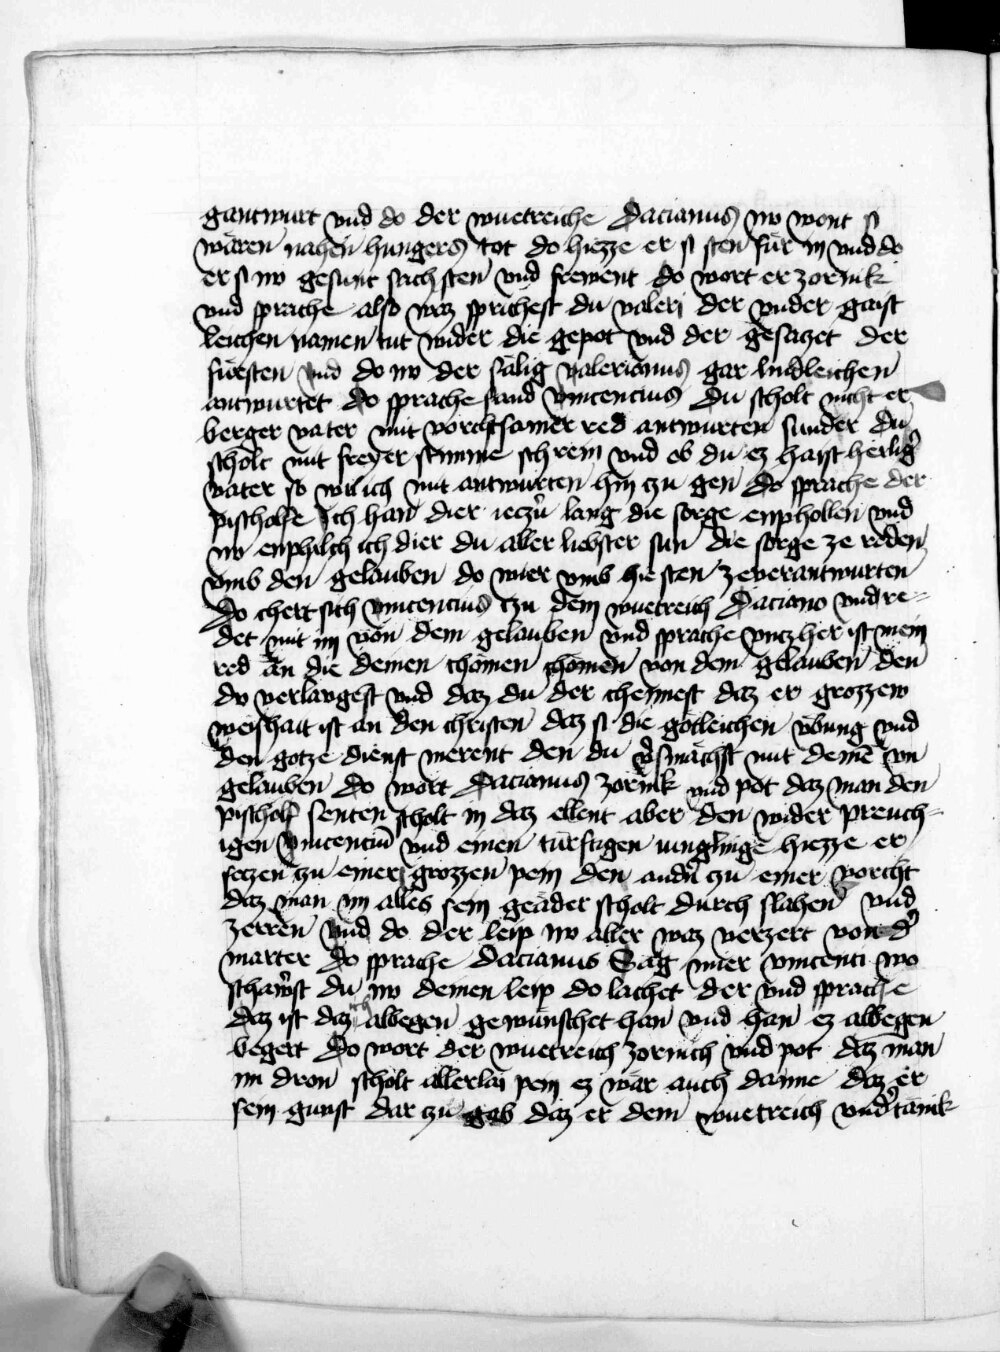 gantwurt vnd do der wuetreiche Dacianus nv wont si
wären nahen hungers tot do hiezze er si sten für in vnd do
er si nv gesunt sach sten vnd frewent do wort er zornik
vnd sprache also waz sprichest du valeri der vnder gaist
leichen namen tut wider die gepot vnd der gesatzet der
fürsten vnd do nv der sälig valerianus gar lindleichen
antwurtet Do sprache sand vincencius Du scholt nicht er
berger vater mit vorchtsamer red antwurten sunder du
scholt mit freyer stimme schrein vnd ob du ez haist heilig
vater so wil ich mit antwurten hin zu gen Do sprache der
pischolfe Ich han dier ieczu lang die sorge enpholhen vnd
nv enphilch ich dier du aller liebster sun die sorge ze reden
vmb den gelauben do wier vmb hie sten ze verantwurten
Do chert sich vincencius czu dem wuetreich Daciano vnd re=
det mit im von dem gelauben vnd sprache vntz her ist mein
red an die deinen chomen chomen von dem gelauben den
du verlaugest vnd daz du der chennest daz er grozzew
weishait ist an den christen daz si die gotleichen vbung vnd
den gotze dienst merent den du v'smächst mit deinē vn
gelauben Do wort Dacianus zornik vnd pot daz man den
pischolf senten scholt in daz ellent aber den wider preuch=
igen vincentiū vnd einen türstigen iunglinge hiezze er
seczen zu einer grozzen pein den and'n czu einer vorcht
daz man im alles sein geäder scholt durch slahen vnd
zerren vnd do der leip nv aller waz verzert von d'
marter Do sprache Dacianus Sag mier vincenti wo
schawst du nv deinen leip do lachet der vnd sprache
daz ist daz ich allwegen gewünschet han vnd han ez allwegen
begert Do wort der wuetreich zornich vnd pot daz man
im dron scholt allerlai pein ez wär auch danne daz er
sein gunst dar zu gab daz er dem wuetreich vnd'tänik